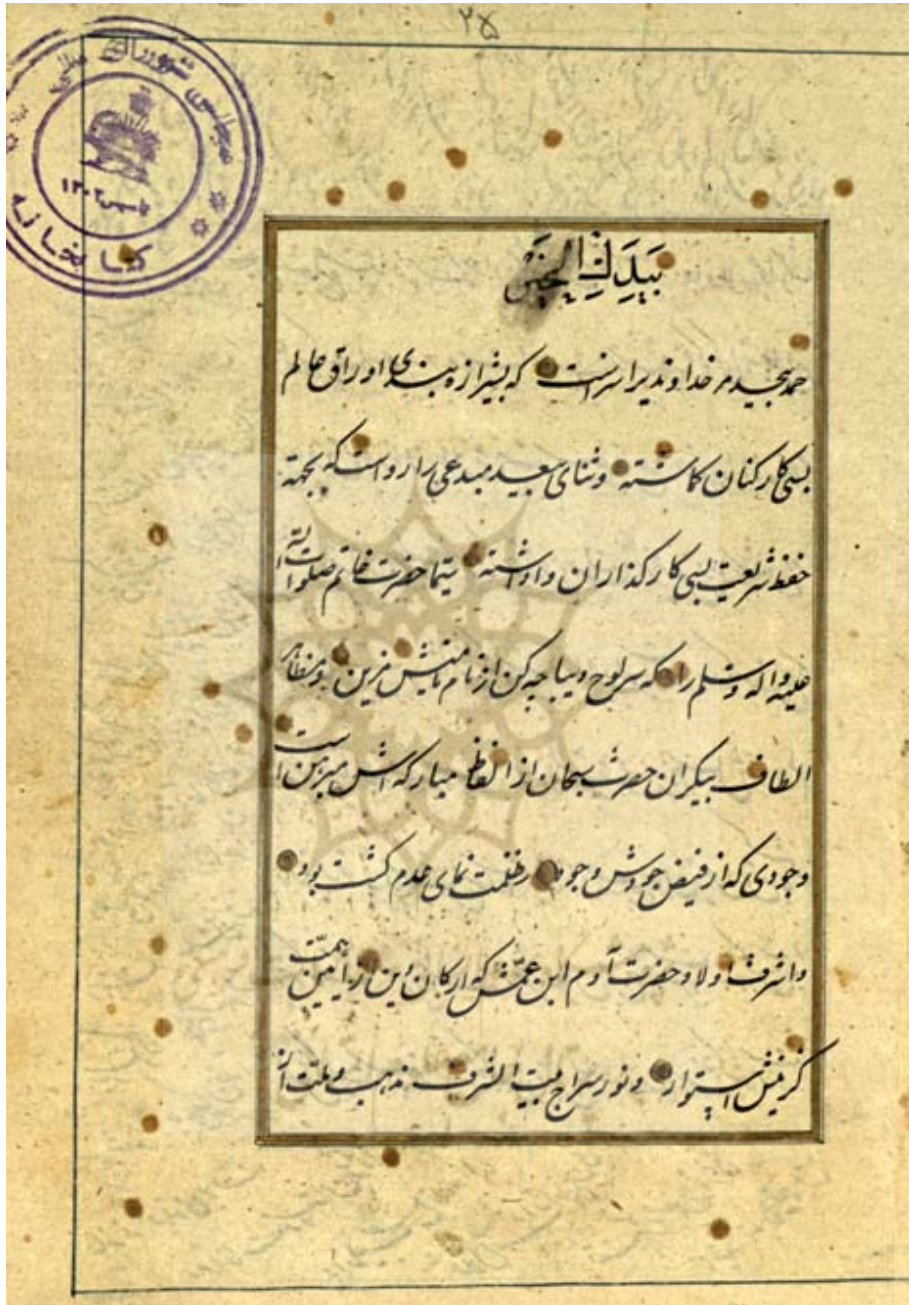 ۲۵
مجلس شورای ملی
تاسیس ۱۳۰۲
کتابخانه
بِیَدِكَ الْخَیْر
حمد بیحد مر خداوندیرا سزاست که بشیرازه بندی اوراق عالم
بسی کارکنان کاشته و ثنای بیعد مبدعی را رواست که بجهة
حفظ شریعت بسی کارگذاران واداشته سیّما حضرت خاتم صلوات الله
علیه و اله و سلم را که سرلوح دیباچه کن از نام نامیش مزین و مظاهر
الطاف بیکران حضرت سبحان از الفاظ مبارکه اش مبرهن است
وجودی که از فیض جودش وجود ظلمت نمای عدم گشت بود
و اشرف اولاد حضرت آدم ابن عمّش که ارکان دین از همت
گزینش استوار و نور سراج بیت الشرف مذهب و ملت از